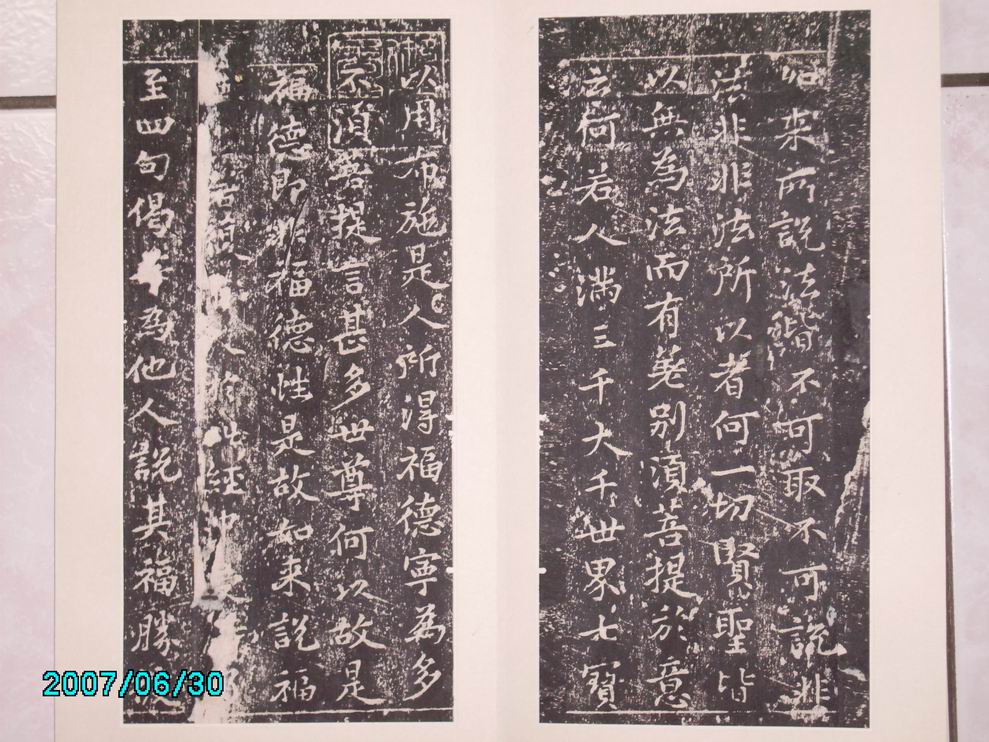 如来所說法皆不可取不可說非
法非非法所以者何一切賢聖皆
以無為法而有差别須菩提於意
云何若人满三千大千世界七寶
以用布施是人所得福德寧為多
不須菩提言甚多世尊何以故是
福德即非福德性是故如来說福
若復人於此經中
至四句偈等為他人說其福勝彼
2007/06/30